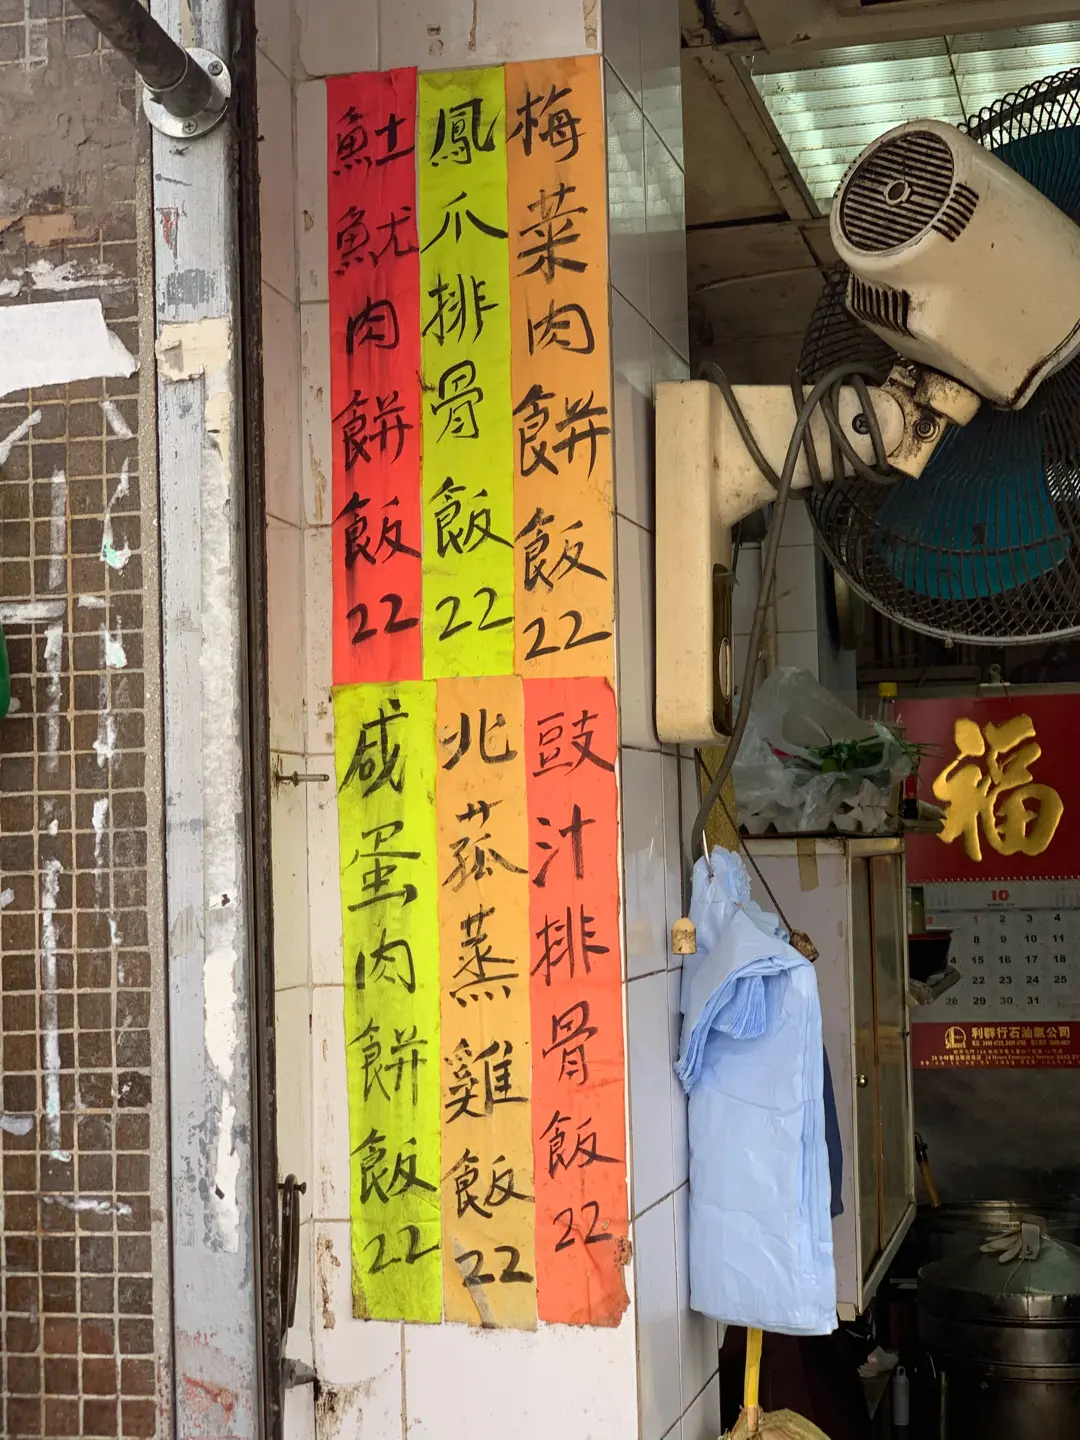 梅菜肉餅飯22
鳳爪排骨飯22
魷魷肉餅飯22
豉汁排骨飯22
北菰蒸雞飯22
咸蛋肉餅飯22
福
10
1 2 3 4
8 9 10 11
15 16 17 18
22 23 24 25
28 29 30 31
利群行石油氣公司